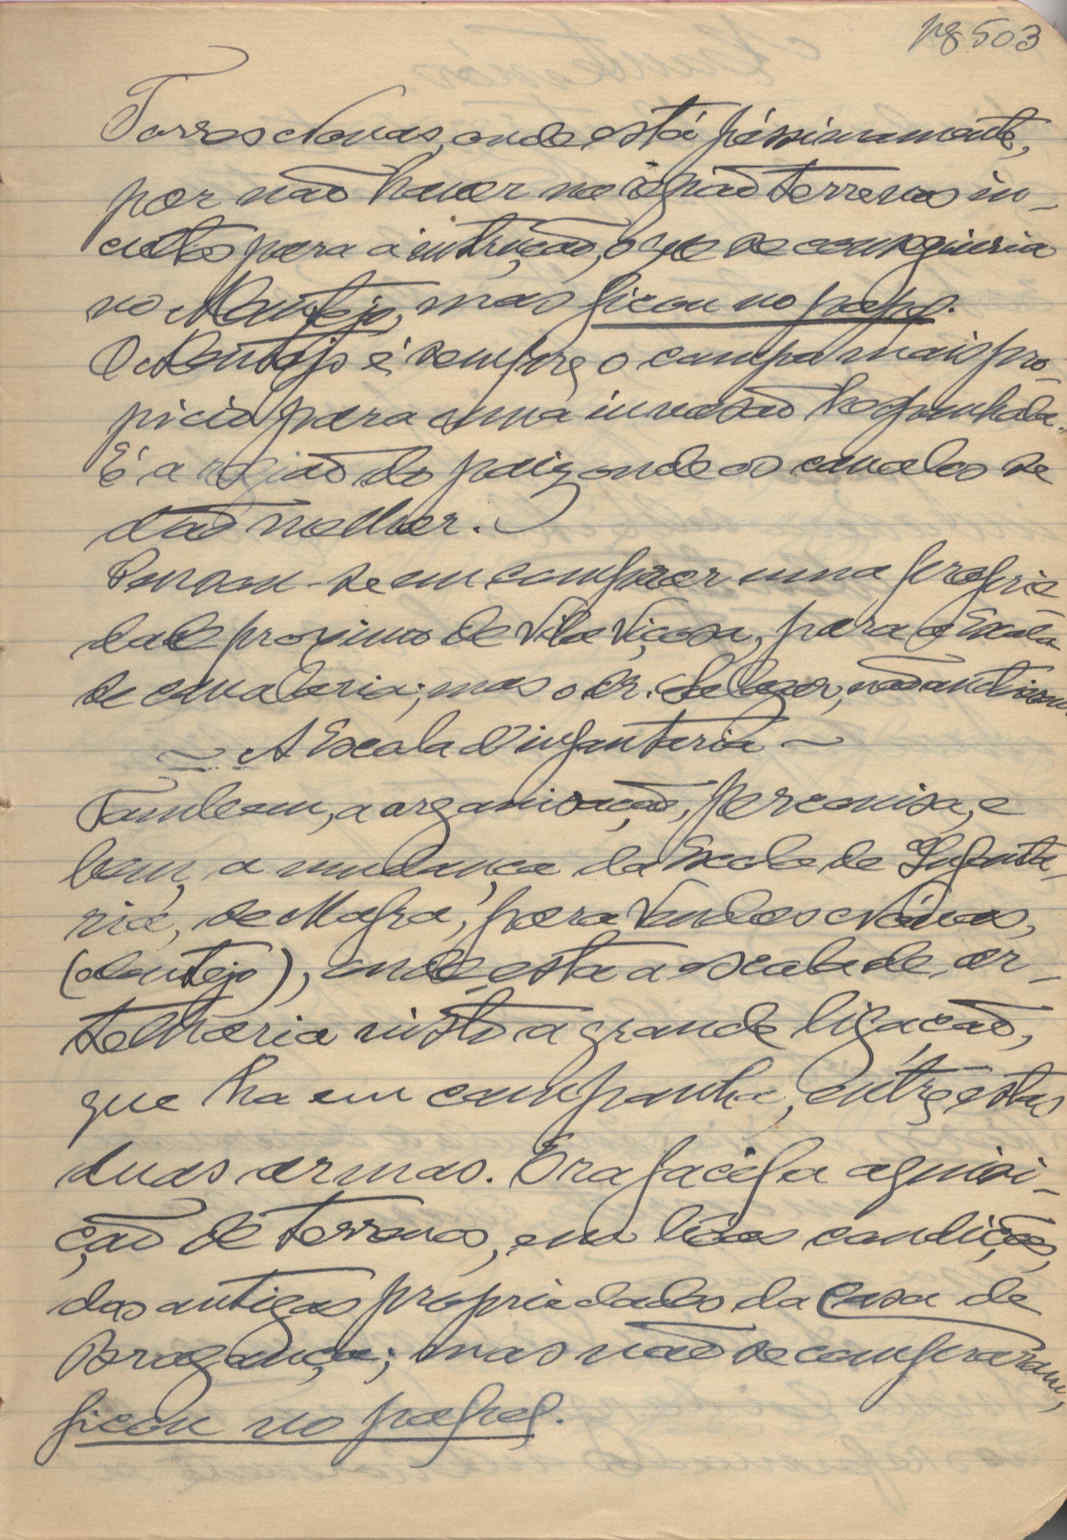 pg 503
Torres Novas, onde está péssimamente,
por não haver na região terrenos in-
cultos para a intrução, o que se conseguiria
no Alentejo, mas ficou no papel.
O Alentejo é sempre o campo mais pro-
picio para uma invasão hespanhola.
É a região do paiz onde os cavalos se
dão melhor.
Pensou-se em comprar uma proprie-
dade proximo de Vila Viçosa, para a Escola
de cavalaria; mas o Dr. Salazar, não
~ A Escola d'infantaria ~
Tambem, a organisação, perconisa, e
bem, a mudança da Escola de Infanta-
ria, de Mafra, para Vendas Nóvas,
(alentejo), onde esta a escola de ar-
telharia visto a grande ligação,
que ha em campanha, entre estas
duas armas. Era facil a aquisi-
ção de terrenos, em bôas condições,
das antigas propriedades da Casa de
Bragança; mas não se compraram,
ficou no papel.